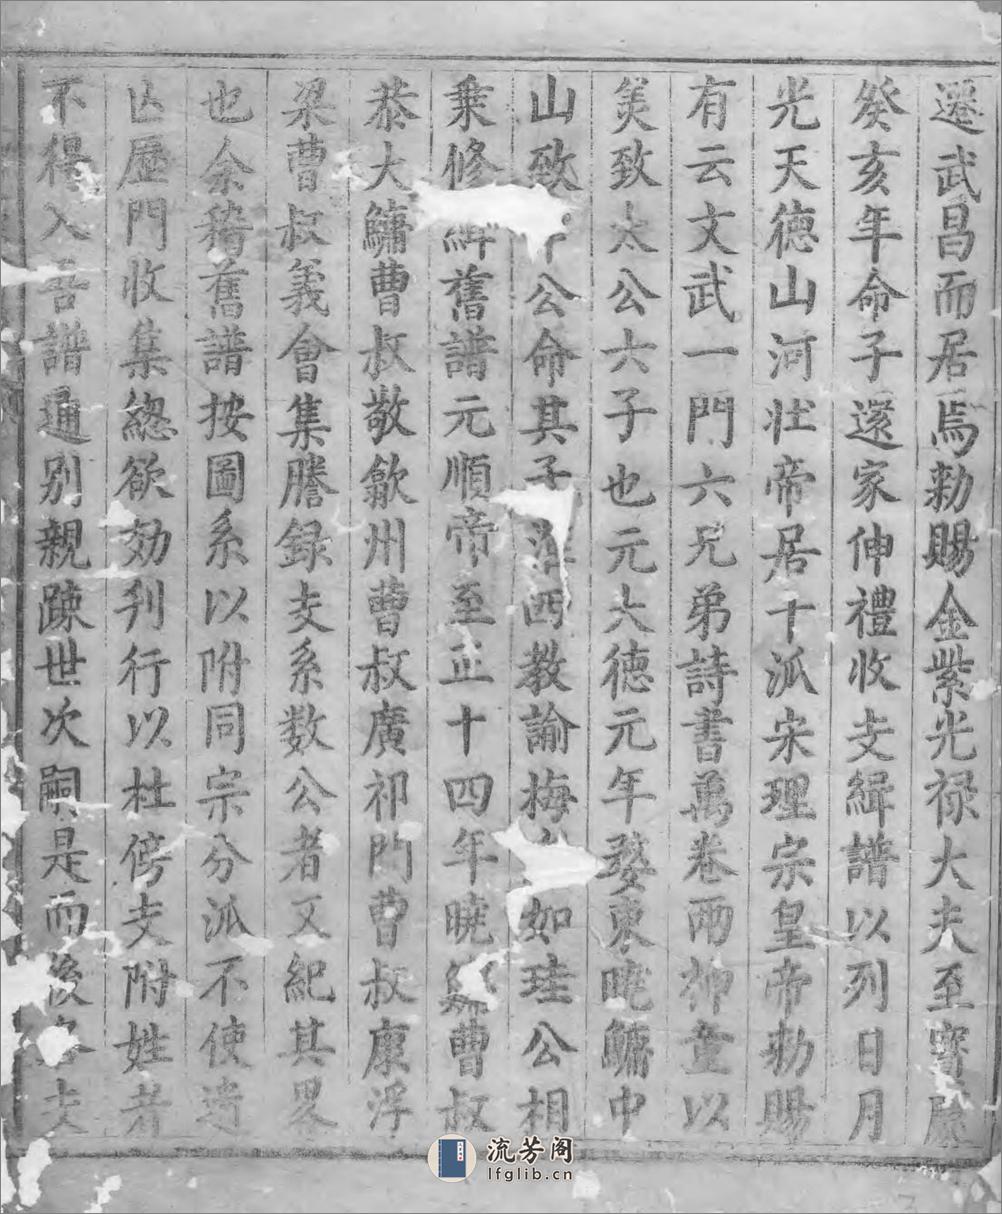 遷武昌而居焉勑賜金紫光禄大夫至寶
癸亥年命子還家伸禮收支緝譜以列日月
光天德山河壯帝居十派宋理宗皇帝勑賜
有云文武一門六兄弟詩書萬卷兩神童以
美致太公六子也元大德元年婺東曉鱅中
山致公命其子西教諭梅如珪公相
乗修緝舊譜元順帝至正十四年曉曹叔
恭大鱅曹叔敬歙州曹叔廣祁門曹叔康浮
梁曹叔義會集謄録支系数公者又紀其畧
也余稽舊譜按圖系以附同宗分派不使遺
亡歷門收集緫欲効刋行以杜傍支附姓者
不得入吾譜通別親踈世次嗣是而後支
流芳阁
lfglib.cn